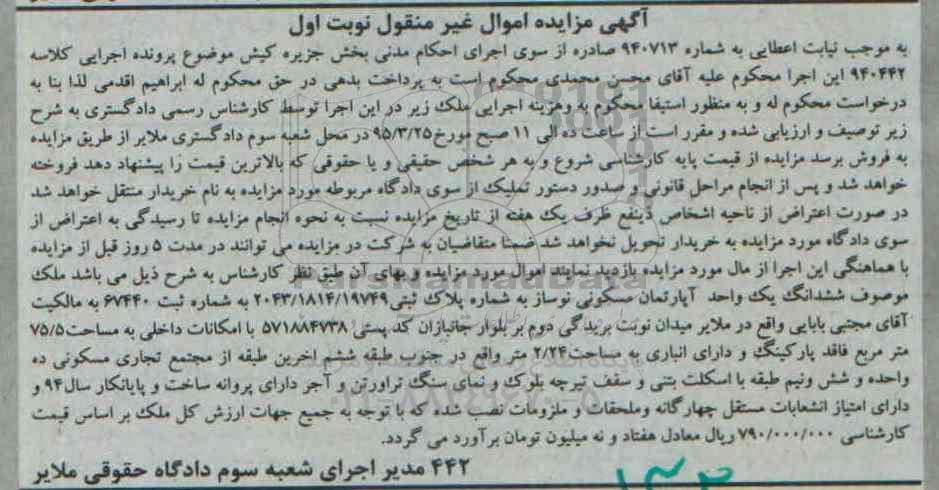 آگهی مزایده اموال غیر منقول نوبت اول
به موجب نیابت اعطایی به شماره ۹۴۰۷۱۳ صادره از سوی اجرای احکام مدنی بخش جزیره کیش موضوع پرونده اجرایی کلاسه
۹۴۰۴۴۲ این اجرا محکوم علیه آقای محسن محمدی محکوم است به پرداخت بدهی در حق محکوم له ابراهیم اقدمی لذا بنا به
درخواست محکوم له و به منظور استیفا محکوم به وهزینه اجرایی ملک زیر در این اجرا توسط کارشناس رسمی دادگستری به شرح
زیر توصیف و ارزیابی شده و مقرر است از ساعت ده الی ۱۱ صبح مورخ ۹۵/۳/۲۵ در محل شعبه سوم دادگستری ملایر از طریق مزایده
به فروش برسد مزایده از قیمت پایه کارشناسی شروع و به هر شخص حقیقی و یا حقوقی که بالاترین قیمت را پیشنهاد دهد فروخته
خواهد شد و پس از انجام مراحل قانونی و صدور دستور تملیک از سوی دادگاه مربوطه مورد مزایده به نام خریدار منتقل خواهد شد
در صورت اعتراض از ناحیه اشخاص ذینفع ظرف یک هفته از تاریخ مزایده نسبت به نحوه انجام مزایده تا رسیدگی به اعتراض از
سوی دادگاه مورد مزایده به خریدار تحویل نخواهد شد ضمنا متقاضیان به شرکت در مزایده می توانند در مدت ۵ روز قبل از مزایده
با هماهنگی این اجرا از مال مورد مزایده بازدید نمایند اموال مورد مزایده و بهای آن طبق نظر کارشناس به شرح ذیل می باشد ملک
موصوف ششدانگ یک واحد آپارتمان مسکونی نوساز به شماره پلاک ثبتی ۲۰۴۳/۱۸۱۴/۱۹۷۴۹ به شماره ثبت ۶۷۴۴۰ به مالکیت
آقای مجتبی بابایی واقع در ملایر میدان نوبت بریدگی دوم بر بلوار جانبازان کد پستی ۵۷۱۸۸۴۷۳۸ با امکانات داخلی به مساحت ۷۵/۵
متر مربع فاقد پارکینگ و دارای انباری به مساحت ۲/۲۴ متر واقع در جنوب طبقه ششم اخرین طبقه از مجتمع تجاری مسکونی ده
واحده و شش ونیم طبقه با اسکلت بتنی و سقف تیرچه بلوک و نمای سنگ تراورتن و آجر دارای پروانه ساخت و پایانکار سال ۹۴ و
دارای امتیاز انشعابات مستقل چهارگانه وملحقات و ملزومات نصب شده که با توجه به جمیع جهات ارزش کل ملک بر اساس قیمت
کارشناسی ۷۹۰/۰۰۰/۰۰۰ ریال معادل هفتاد و نه میلیون تومان برآورد می گردد.
۴۴۲ مدیر اجرای شعبه سوم دادگاه حقوقی ملایر
ParsNamadData